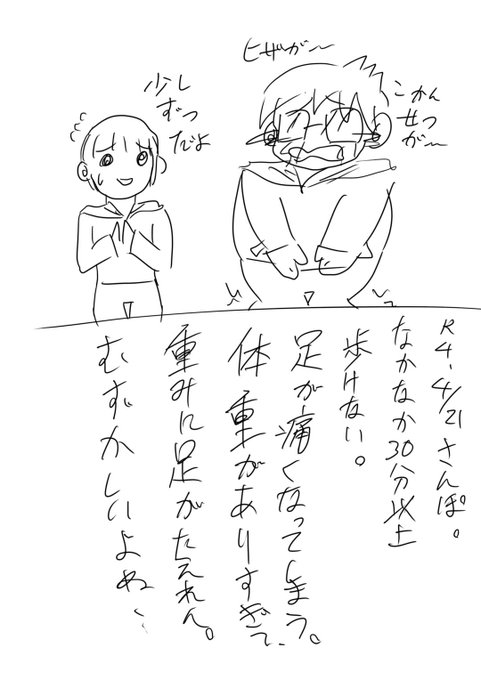 ヒザが〜
こかん
せつ
が〜
少し
ずつ
だよ
R4.4/21さんぽ。
なかなか30分以上
歩けない。
足が痛くなってしまう。
体重がありすぎて、
重みに足がたえれん。
むずかしいよぬ、、